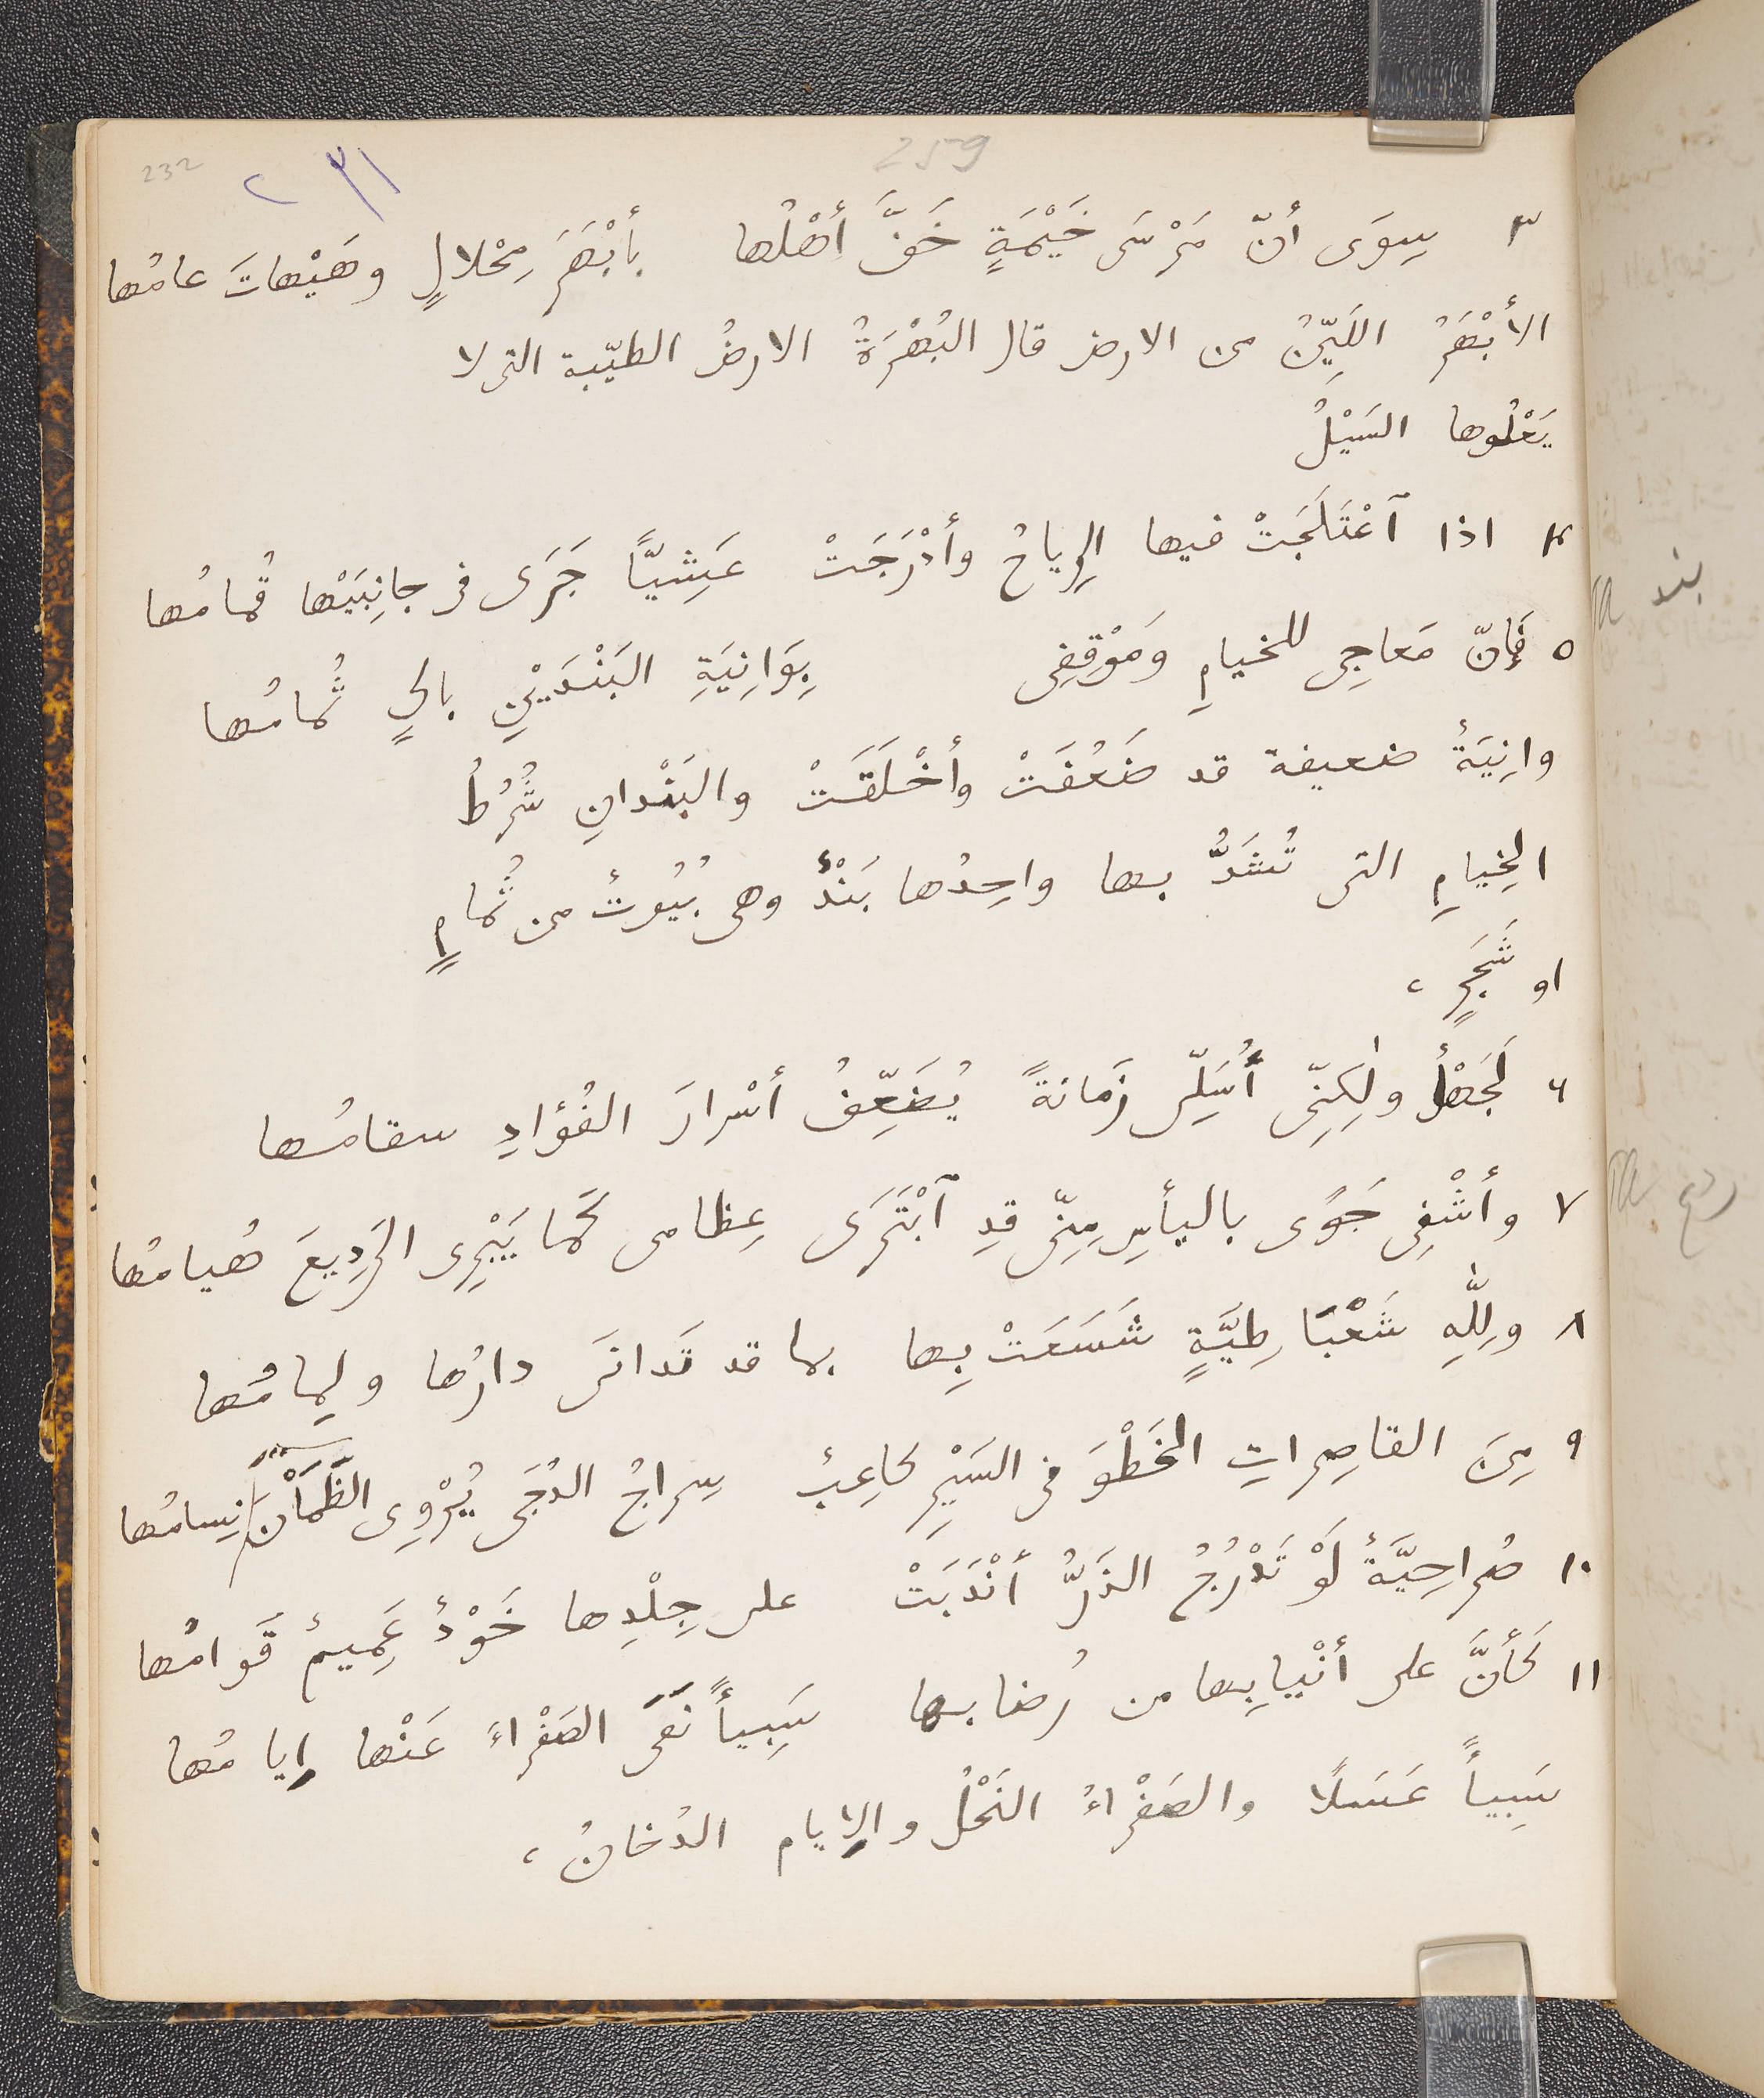 232
٢٣١
259
٣ سِوَى أنّ مَرْسَى خَيْمَةٍ خَفَّ أهْلُها بأبْهَرَ مِحْلالٍ وهَيْهاتَ عامُها
الأبْهَرُ اللَيِّنُ من الارض قال البُهْرَةُ الارضُ الطيّبة التى لا
يَعْلُوها السَيْلُ
٤ اذا ٱعْتَلَجَتْ فيها الرِياحُ وأدْرَجَتْ عَشِيًّا جَرَى فى جانِبَيْها قُمامُها
٥ فَإنّ مَعاجِى للخيامِ ومَوْقِفِى بِوَانِيَةِ البَنْدَيْنِ بالٍ ثُمامُها
وانِيَةٌ ضعيفة قد ضَعُفَتْ وأخْلَقَتْ والبَنْدانِ شُرُطُ
الخِيامِ التى تُشَدُّ بها واحِدُها بَنْدٌ وهى بُيُوتٌ من ثُمامٍ
او شَجَرٍ ،
٦ لَجَهْلٌ ولٰكِنِّى أُسَلِّى زَمانةً يُضَعِّفُ أسْرارَ الفُؤادِ سقامُها
٧ وأشْفِى جَوًى باليأسِ مِنِّى قدِ ٱبْتَرَى عِظامى كَما يَبْرِى الرَدِيعَ هُيامُها
٨ وللّٰهِ شَعْبَا طِيَّةٍ شَسَعَتْ بِها بما قد تَدانَى دارُها ولِمامُها
٩ مِنَ القاصِراتِ الخَطْوَ فى السَيْرِ كاعِبٌ سِراجُ الدُجَى يُرْوِى الظَمْآنَ نِسامُها
١٠ صُراحِيَّةٌ لَوْ تَدْرُجُ الذَرُّ أنْدَبَتْ على جِلْدِها خَوْدٌ عَمِيمٌ قَوامُها
١١ كَأنَّ على أنْيابِها من رُضابها سَبِيأً نَفَى الصَفْراءَ عَنْها إيامُها
سَبِيأً عَسَلًا والصَفْراءُ النَحْلُ والإيام الدُخانُ ،
بند
ردع